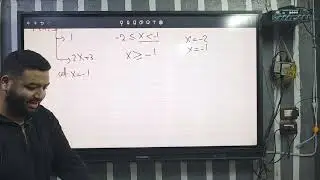 1
-2 ≤ x < -1
x = -2
2x+3
x ≥ -1
x = -1
x = -1